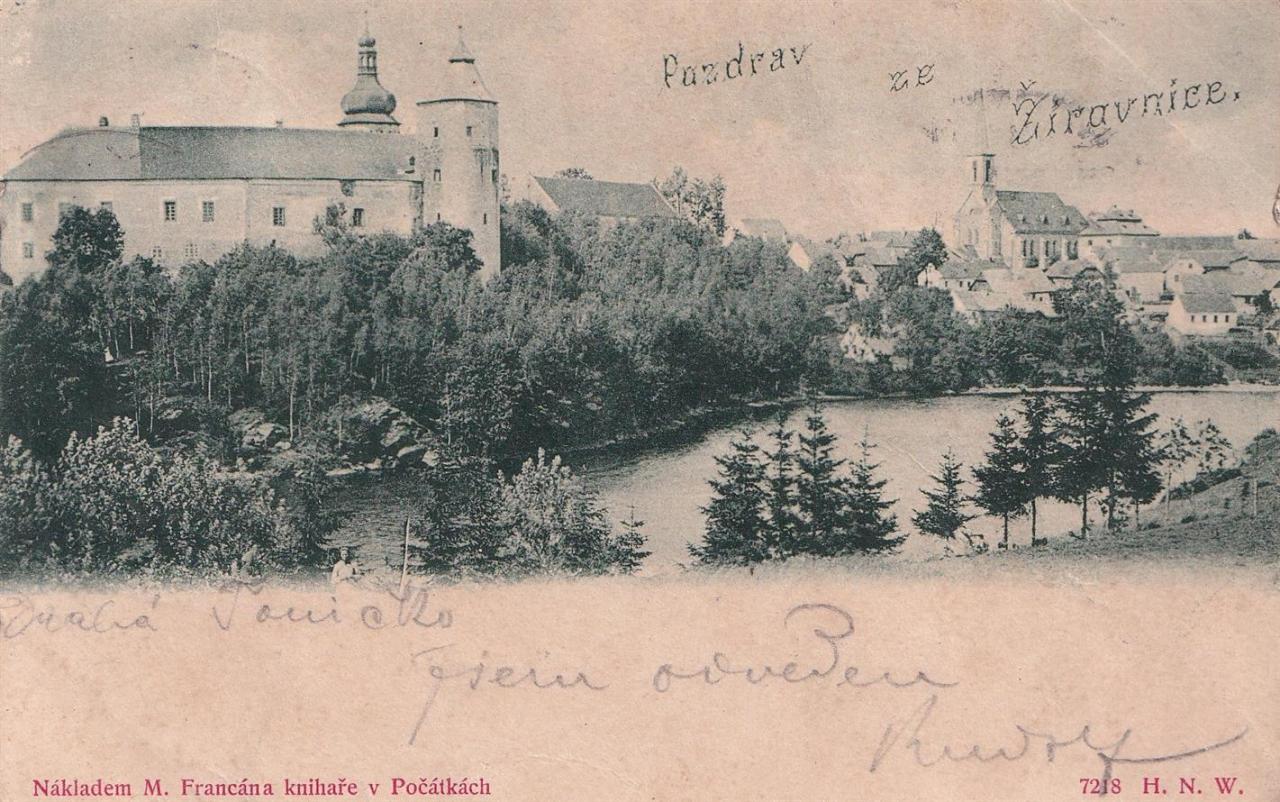 Pozdrav ze Žiravnice.
Drahá Toničko
jsem odveden
Rudolf
Nákladem M. Francána knihaře v Počátkách
7218 H. N. W.